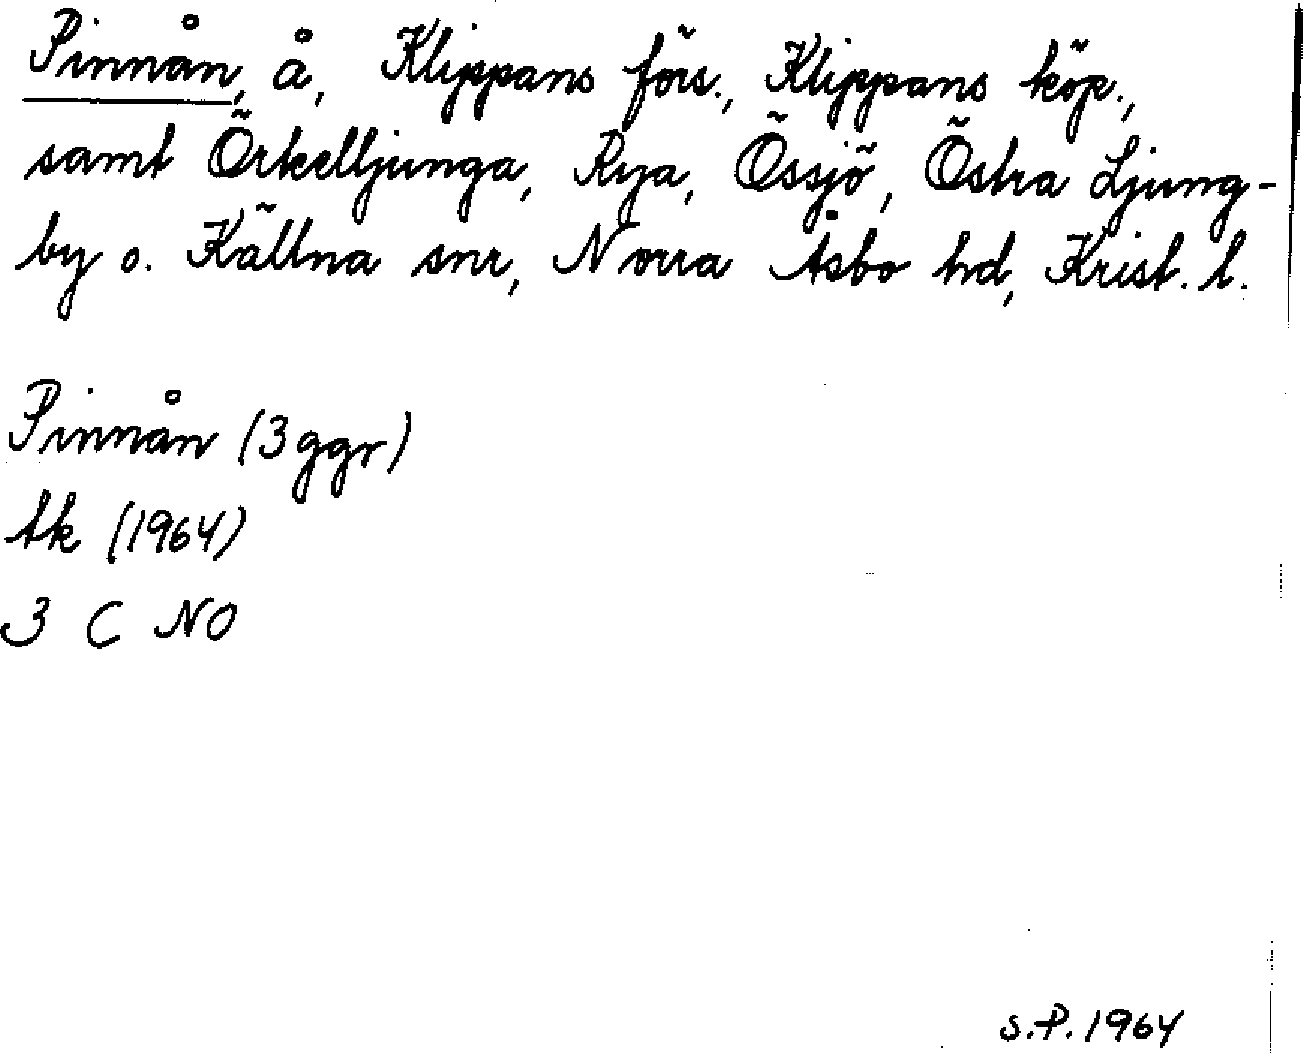 Pinnån, å, Klippans förs., Klippans köp.,
samt Örkelljunga, Rya, Össjö, Östra Ljung-
by o. Källna snr, Norra Åsbo hd, Krist. l.
Pinnån (3 ggr)
tk (1964)
3 C NO
S.P. 1964